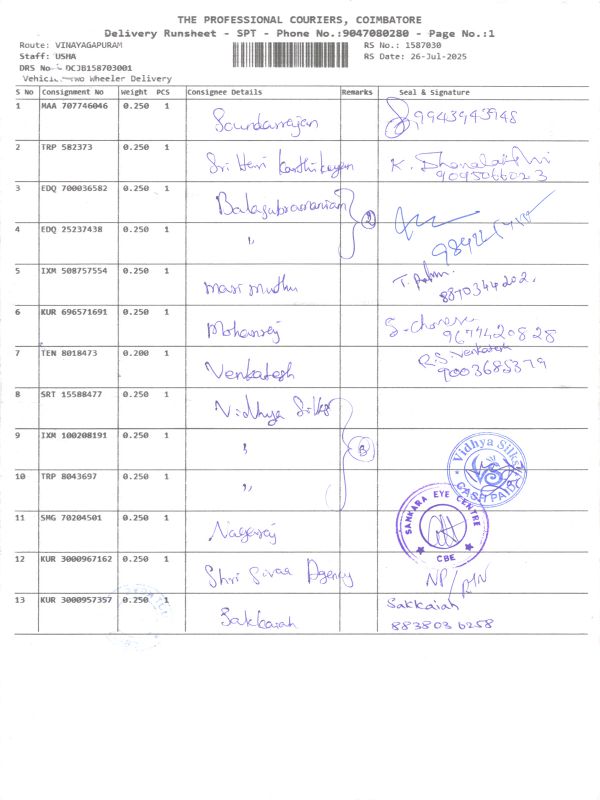 THE PROFESSIONAL COURIERS, COIMBATORE
Delivery Runsheet - SPT - Phone No.:9047080280 - Page No.:1
Route: VINAYAGAPURAM
RS No.: 1587030
Staff: USHA
RS Date: 26-Jul-2025
DRS No DCJB158703001
Vehicle Two Wheeler Delivery
S No Consignment No Weight PCS Consignee Details Remarks Seal & Signature
1 MAA 707746046 0.250 1 Soundarrajan 9943943948
2 TRP 582373 0.250 1 Sri Hari Karthikeyan K. 9095066023
3 EDQ 700036582 0.250 1 Balasubramaniam 2
4 EDQ 25237438 0.250 1 "
5 IXM 508757554 0.250 1 Mari Muthu 8870344202
6 KUR 696571691 0.250 1 Mohanraj 9677420828
7 TEN 8018473 0.200 1 Venkatesh R.S. Venkatesh 9003685379
8 SRT 15588477 0.250 1 Vidhya Silks
9 IXM 100208191 0.250 1 " 3
Vidhya Silks
CASH PAID
10 TRP 8043697 0.250 1 "
11 SMG 70204501 0.250 1 Nagaraj
SANKARA EYE CENTRE
CBE
12 KUR 3000967162 0.250 1 Shri Sivaa Agency
13 KUR 3000957357 0.250 1 Sakkaiah Sakkaiah
8838036258